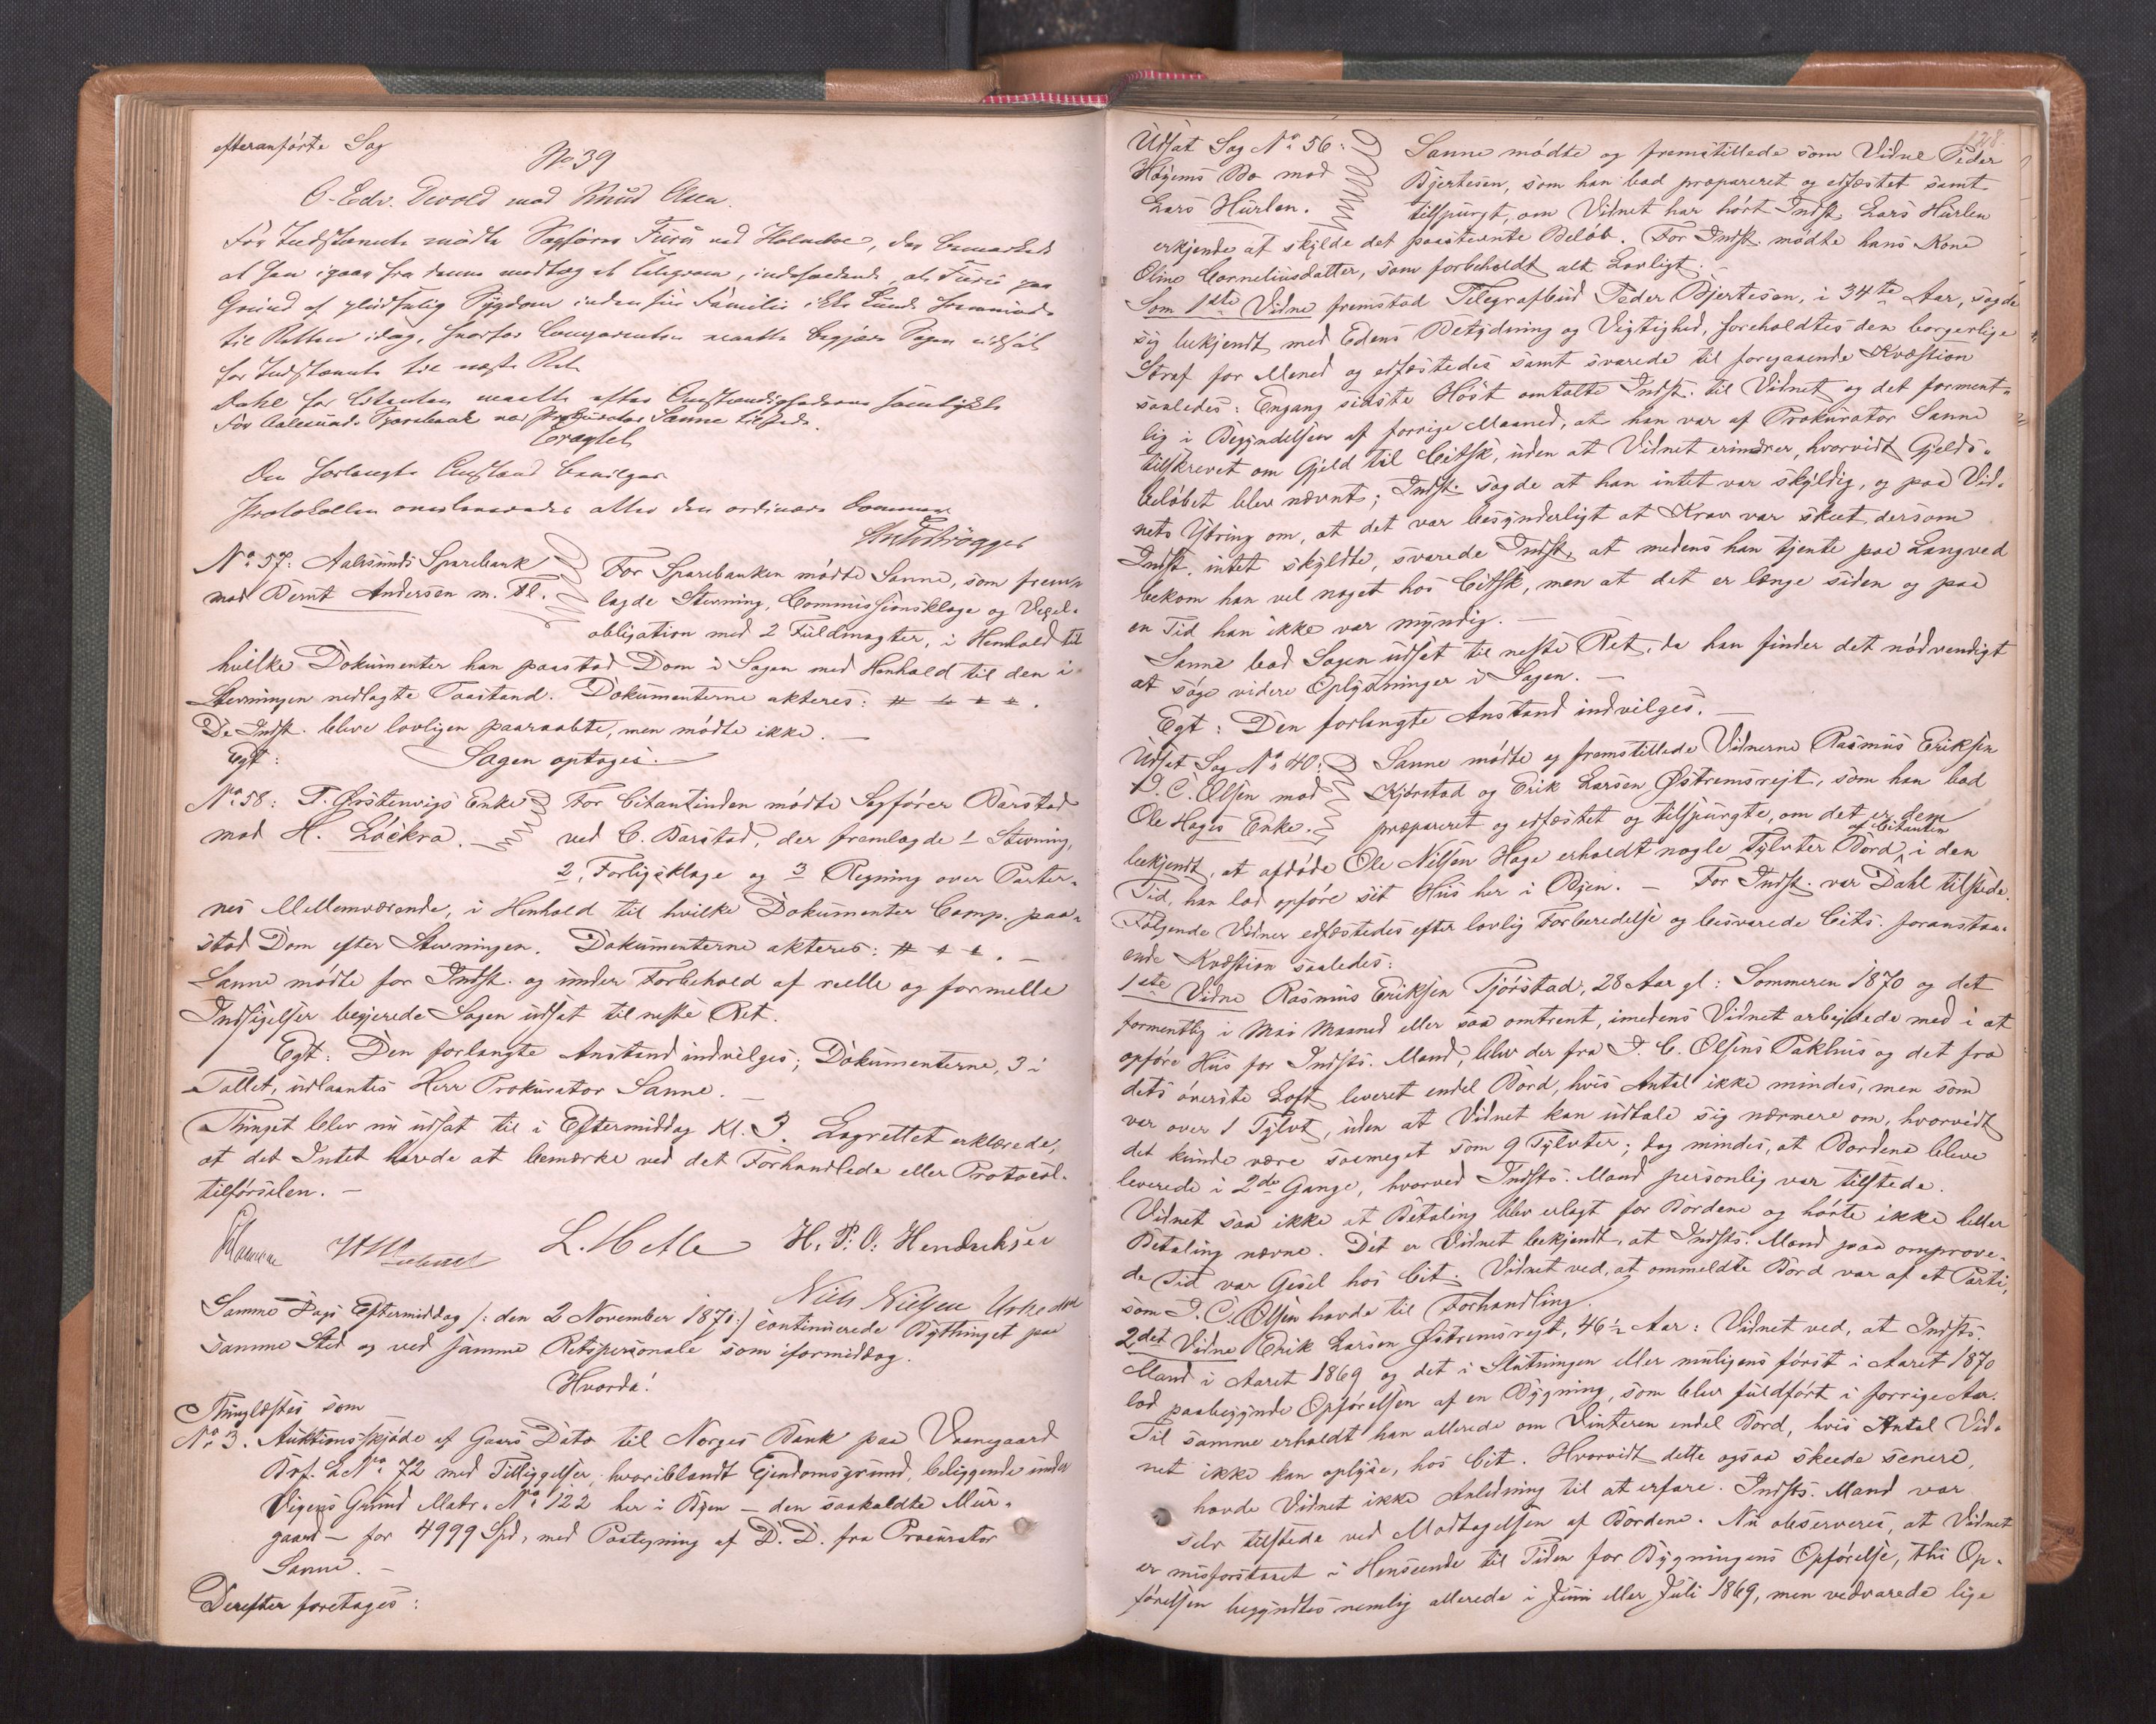 efteranførte Sag
No 39
O. Edv. Devold mod Knud Aua.
For Indstævnte mødte Sagfører Furu ved Holmboe, der bemærkede
at han igaar fra denne modtog et Telegram, indeholdende, at Furu paa
Grund af pludselig Sygdom inden sin Familie ikke kunde fremmøde
til Retten idag, hvorfor Comparenten maatte begjære Sagen udsat
for Indstævnte til næste Ret.
Dahl for Citanten maatte efter Omstændighederne samtykke
For Aalesunds Sparebank var Prokurator Sanne tilstede.
Eragtet
Den forlangte Anstand bevilges
Protokollen overleveredes atter den ordinære Dommer
No 57: Aalesunds Sparebank
mod Bernt Andersen m. Fl.
For Sparebanken mødte Sanne, som frem-
lagde Stevning, Commissionsklage og Vexel-
obligation med 2 Fuldmagter, i Henhold til
hvilke Dokumenter han paastod Dom i Sagen med Henhold til den i
Stevningen nedlagte Paastand. Dokumenterne akteres: # # # #.
De Indst. bleve lovligen paaraabte, men mødte ikke. —
Egt: Sagen optages. —
No 58: T. Ørstenvigs Enke
mod H. Løckra. —
For Citantinden mødte Sagfører Barstad
ved C. Barstad, der fremlagde 1 Stevning,
2, Forligsklage og 3 Regning over Parter-
nes Mellemværende, i Henhold til hvilke Dokumenter Comp. paa-
stod Dom efter Stevningen. Dokumenterne akteres: # # #. —
Sanne mødte for Indst. og under Forbehold af reelle og formelle
Indsigelser begjerede Sagen udsat til neste Ret.
Egt: Den forlangte Anstand indvilges; Dokumenterne, 3 i
Tallet, udlaantes Herr Prokurator Sanne. —
Thinget blev nu udsat til i Eftermiddag Kl. 3. Lagrettet erklærede,
at det Intet havde at bemærke ved det Forhandlede eller Protocol-
tilførselen. —
L. Metle H. P. O. Hendriksen
Niels Nielsen
Samme Dags Eftermiddag /: den 2 November 1871:/ continuerede Bythinget paa
samme Sted og ved samme Retspersonale som iformiddag.
Hvorda!
Thinglæstes som
No 3. Auktionsskjøde af Gaars Dato til Norges Bank paa Vaanegaard
Brf. L No 72 med Tilliggelser, hvoriblandt Ejendomsgrund, beliggende under
Vigens Grund Matr. No 122 her i Byen — den saakaldte Mur-
gaard — for 4999 Spd, med Paategning af D. D. fra Procurator
Sanne. —
Derefter foretages:
128.
Udsat Sag No 56:
Hagens Bo mod
Lars Hurlen.
Sanne mødte og fremstillede som Vidne Peder
Bjertesen, som han bad præpareret og edfæstet samt
tilspurgt, om Vidnet har hørt Indst. Lars Hurlen
erkjende at skylde det paastevnte Beløb. For Indst. mødte hans Kone
Oline Corneliusdatter, som forbeholdt alt Lovligt. —
Som 1ste Vidne fremstod Telegrafbud Peder Bjertesen, i 34te Aar, sagde
sig bekjendt med Edens Betydning og Vigtighed, foreholdtes den borgerlige
Straf for Mened og edfæstedes samt svarede til foregaaende Kvæstion
saaledes: Engang sidste Høst omtalte Indst. til Vidnet og det forment-
lig i Begyndelsen af forrige Maaned, at han var af Prokurator Sanne
tilskrevet om Gjeld til Citsk, uden at Vidnet erindrer, hvorvidt Gjelds-
beløbet blev nævnt; Indst. sagde at han intet var skyldig, og paa Vid-
nets Ytring om, at det var besynderligt at Krav var skeet, dersom
Indst. intet skyldte, svarede Indst. at medens han tjente paa Langved
bekom han vel noget hos Citsk, men at det er længe siden og paa
en Tid han ikke var myndig. —
Sanne bad Sagen udsat til neste Ret, da han finder det nødvendigt
at søge videre Oplysninger i Sagen. —
Egt: Den forlangte Anstand indvilges. —
Udsat Sag No 40:
P. C. Olsen mod
Ole Hages Enke.
Sanne mødte og fremstillede Vidnerne Rasmus Eriksen
Kjørstad og Erik Larsen Østremsrejt, som han bad
præpareret og edfæstet og tilspurgte, om det er dem
bekjendt, at afdøde Ole Nilsen Hage erholdt nogle Tylvter Bord af Citanten i den
Tid, han lod opføre sit Hus her i Byen. — For Indst. var Dahl tilstede.
Følgende Vidner edfæstedes efter lovlig Forberedelse og besvarede Cits. foranstaa-
ende Kvæstion saaledes:
1ste Vidne Rasmus Eriksen Fjørstad, 28 Aar gl: Sommeren 1870 og det
formentlig i Mai Maaned eller saa omtrent, imedens Vidnet arbejdede med i at
opføre Hus for Indsts. Mand, blev der fra P. C. Olsens Pakhus og det fra
dets øverste Loft leveret endel Bord, hvis Antal ikke mindes, men som
var over 1 Tylvt, uden at Vidnet kan udtale sig nærmere om, hvorvidt
det kunde være saameget som 9 Tylvter; dog mindes, at Bordene bleve
leverede i 2de Gange, hvorved Indsts. Mand personlig var tilstede.
Vidnet saa ikke at Betaling blev erlagt for Bordene og hørte ikke heller
Betaling nævne. Det er Vidnet bekjendt, at Indsts. Mand paa omprove-
de Tid var Gesel hos Cit. Vidnet ved, at ommeldte Bord var af et Parti,
som P. C. Olsen havde til Forhandling.
2det Vidne Erik Larsen Østremsrejt, 46½ Aar: Vidnet ved, at Indsts.
Mand i Aaret 1869 og det i Slutningen eller muligens først i Aaret 1870
lod paabegynde Opførelsen af en Bygning, som blev fuldført i forrige Aar.
Til samme erholdt han allerede om Vinteren endel Bord, hvis Antal Vid-
net ikke kan oplyse, hos Cit. Hvorvidt dette ogsaa skede senere,
havde Vidnet ikke Anledning til at erfare. Indsts. Mand var
selv tilstede ved Modtagelsen af Bordene. Nu observeres, at Vidnet
er misforstaaet i Henseende til Tiden for Bygningens Opførelse, thi Op-
førelsen begyndtes nemlig allerede i Juni eller Juli 1869, men vedvarede lige